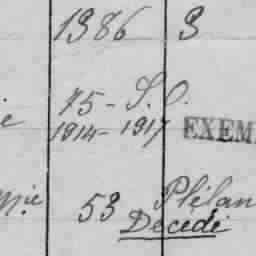 1986 3
75 - S.O.
ie 1914 - 1917 EXEM
mie 53 Plélan
Décédé